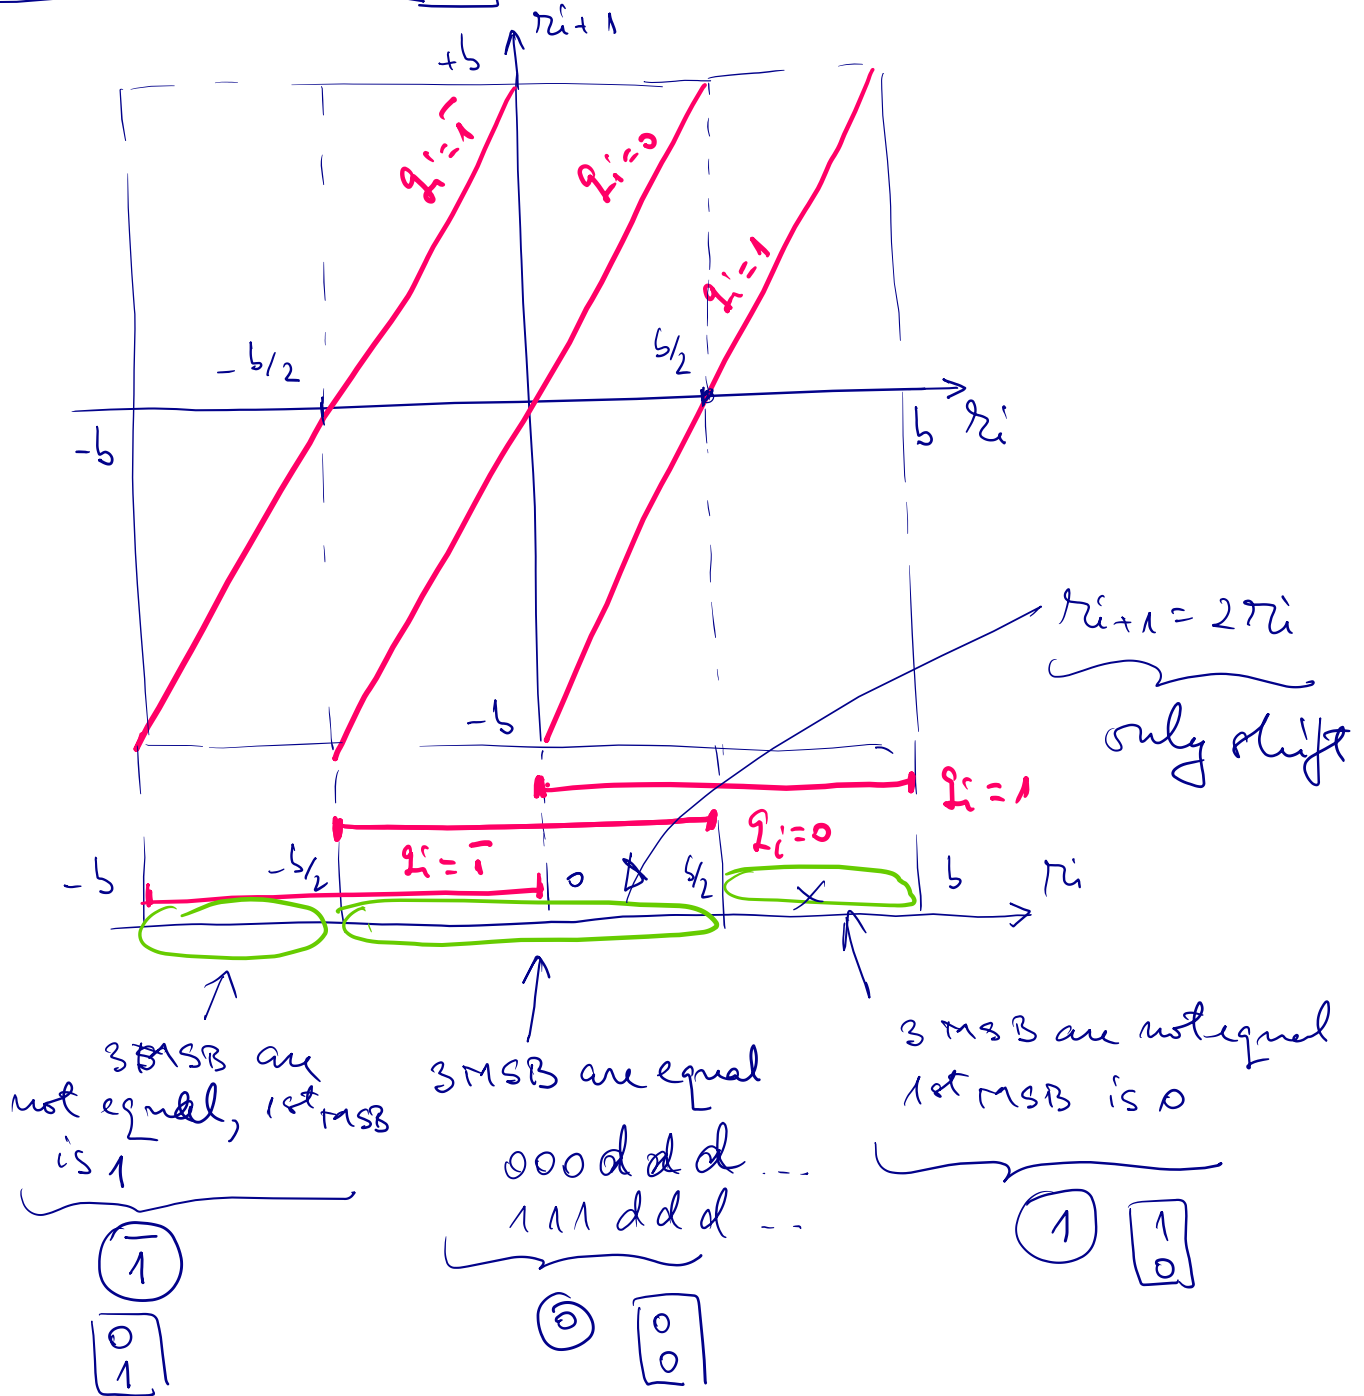 +b
ri+1
qi=1̅
qi=0
qi=1
-b/2
b/2
-b
b
ri
-b
ri+1 = 2ri
only shift
qi = 1
qi=0
qi = 1̅
-b
-b/2
0
b/2
b
ri
x
3MSB are
not equal, 1st MSB
is 1
1̅
0
1
3MSB are equal
000ddd...
111ddd--
0
0
0
3 MSB are not equal
1st MSB is 0
1
1
0